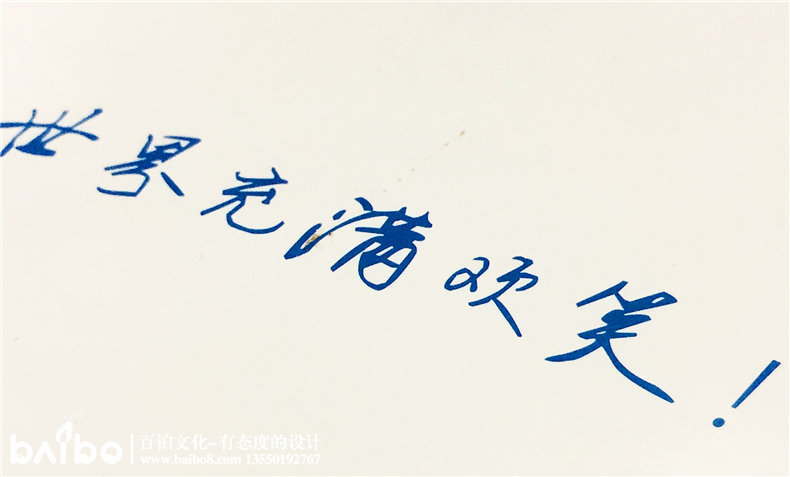 世界充满欢笑！
baibo
百铂文化-有态度的设计
www.baibo8.com 13550192767